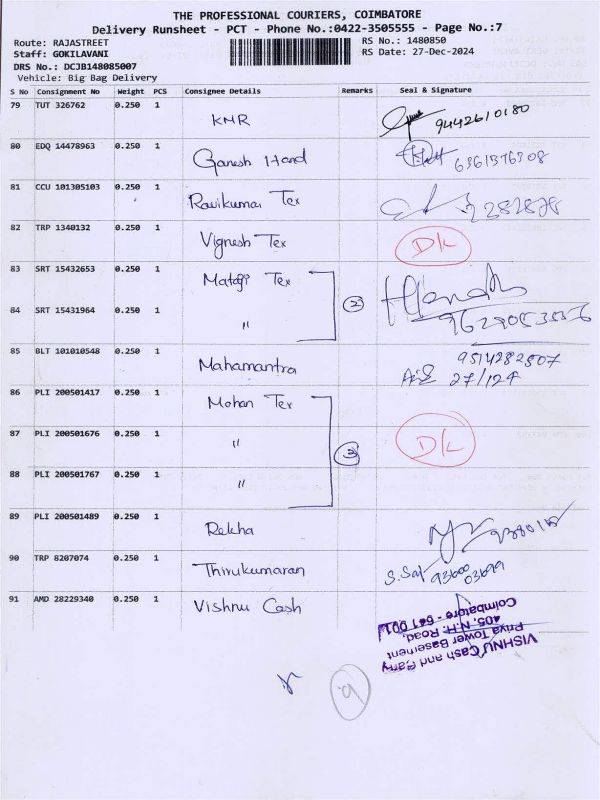 THE PROFESSIONAL COURIERS, COIMBATORE
Delivery Runsheet - PCT - Phone No.:0422-3505555 - Page No.:7
Route: RAJASTREET
RS No.: 1480850
Staff: GOKILAVANI
RS Date: 27-Dec-2024
DRS No.: DCJB148085007
Vehicle: Big Bag Delivery
S No Consignment No Weight PCS Consignee Details Remarks Seal & Signature
79 TUT 326762 0.250 1 KMR 9442610180
80 EDQ 14478963 0.250 1 Ganesh Hand
81 CCU 101305103 0.250 1 Ravikumar Tex
82 TRP 1340132 0.250 1 Vignesh Tex DK
83 SRT 15432653 0.250 1 Mataji Tex
2
84 SRT 15431964 0.250 1 "
85 BLT 101010548 0.250 1 Mahamantra 9514282507
27/12
86 PLI 200501417 0.250 1 Mohan Tex
87 PLI 200501676 0.250 1 " DK
3
88 PLI 200501767 0.250 1 "
89 PLI 200501489 0.250 1 Rekha
90 TRP 8207074 0.250 1 Thirukumaran 93600
03699
91 AMD 28229340 0.250 1 Vishnu Cash
VISHNU Cash and Carry
Priya Tower Basement
405, N.H. Road,
Coimbatore - 641 001
9